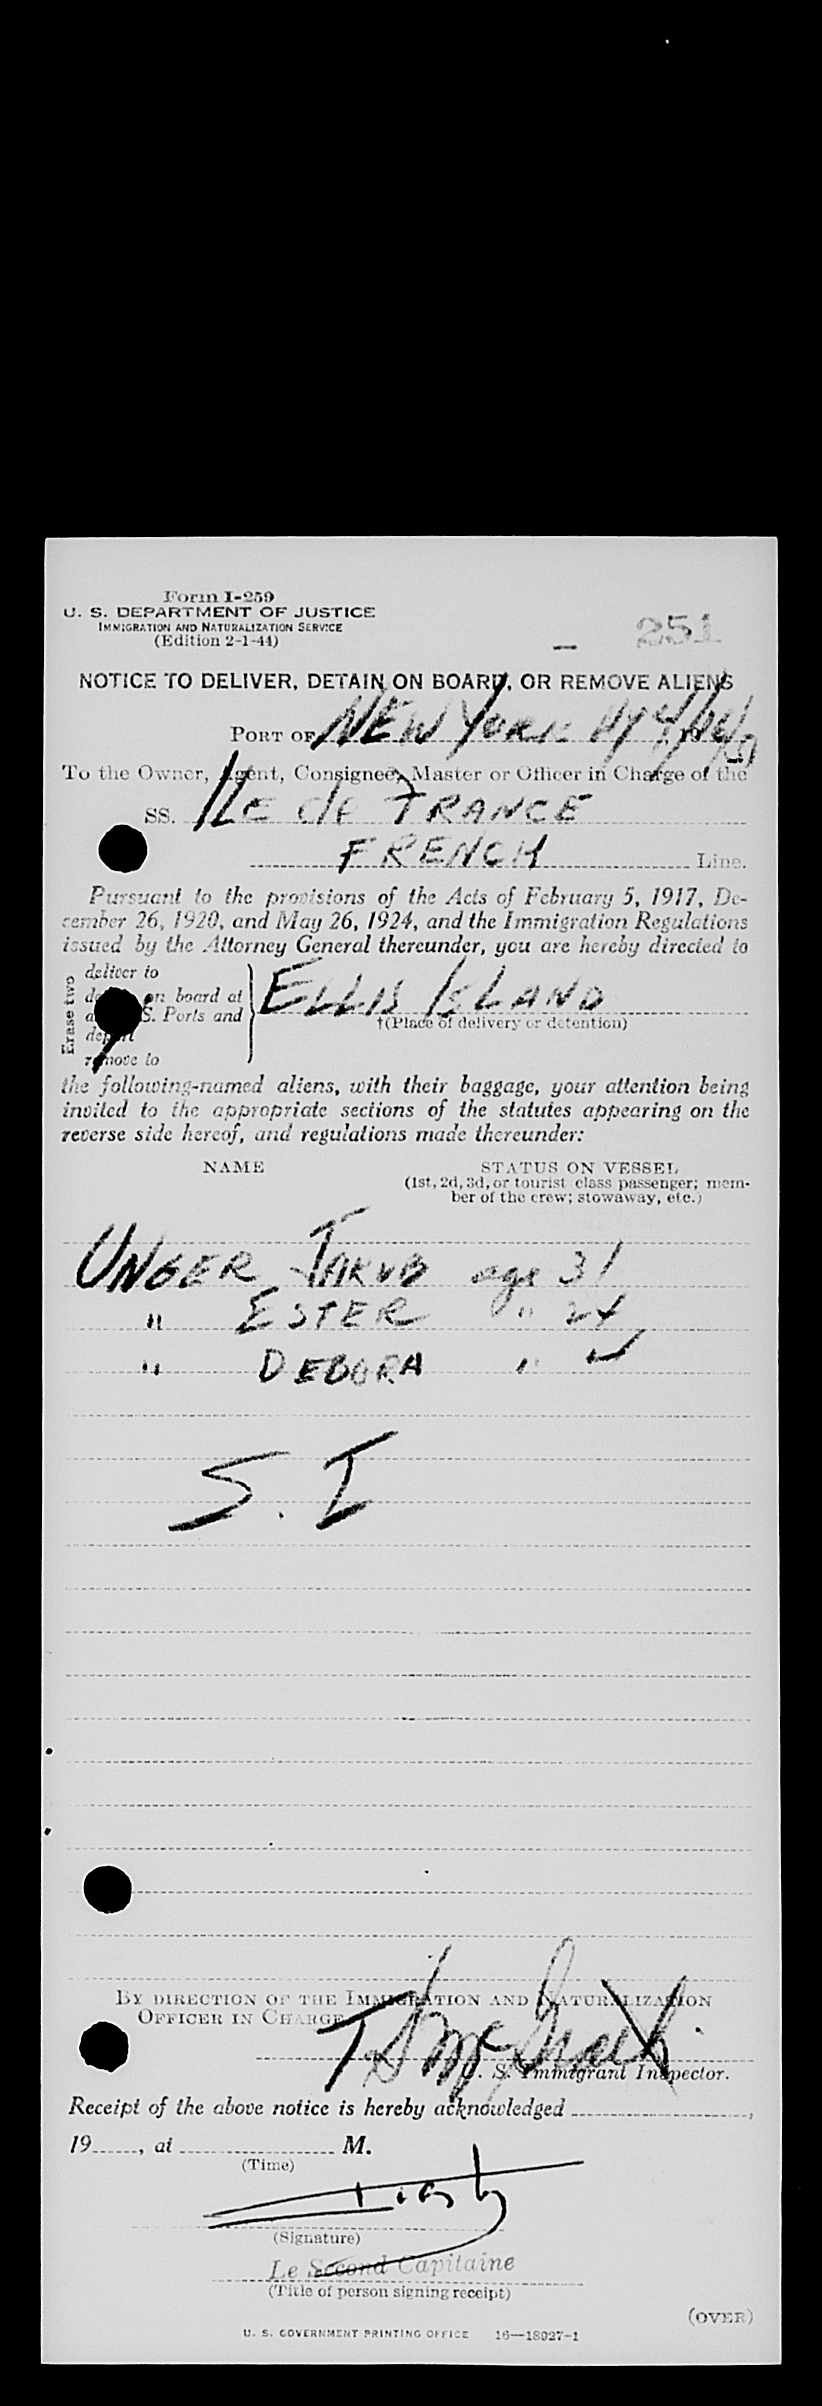 Form I-259
U. S. DEPARTMENT OF JUSTICE
IMMIGRATION AND NATURALIZATION SERVICE
(Edition 2-1-44)
251
NOTICE TO DELIVER, DETAIN ON BOARD, OR REMOVE ALIENS
PORT OF NEW YORK NY
To the Owner, Agent, Consignee, Master or Officer in Charge of the
SS. ILE de FRANCE
FRENCH Line.
Pursuant to the provisions of the Acts of February 5, 1917, De-
cember 26, 1920, and May 26, 1924, and the Immigration Regulations
issued by the Attorney General thereunder, you are hereby directed to
Erase two
deliver to
on board at
S. Ports and
depart
remove to
ELLIS ISLAND
†(Place of delivery or detention)
the following-named aliens, with their baggage, your attention being
invited to the appropriate sections of the statutes appearing on the
reverse side hereof, and regulations made thereunder:
NAME STATUS ON VESSEL
(1st, 2d, 3d, or tourist class passenger; mem-
ber of the crew; stowaway, etc.)
UNGER JAKUB age 31
" ESTER " 24
" DEBORA "
S. I
BY DIRECTION OF THE IMMIGRATION AND NATURALIZATION
OFFICER IN CHARGE
U. S. Immigrant Inspector.
Receipt of the above notice is hereby acknowledged ,
19 , at M.
(Time)
(Signature)
Le Second Capitaine
(Title of person signing receipt)
(OVER)
U. S. GOVERNMENT PRINTING OFFICE 16—18027-1